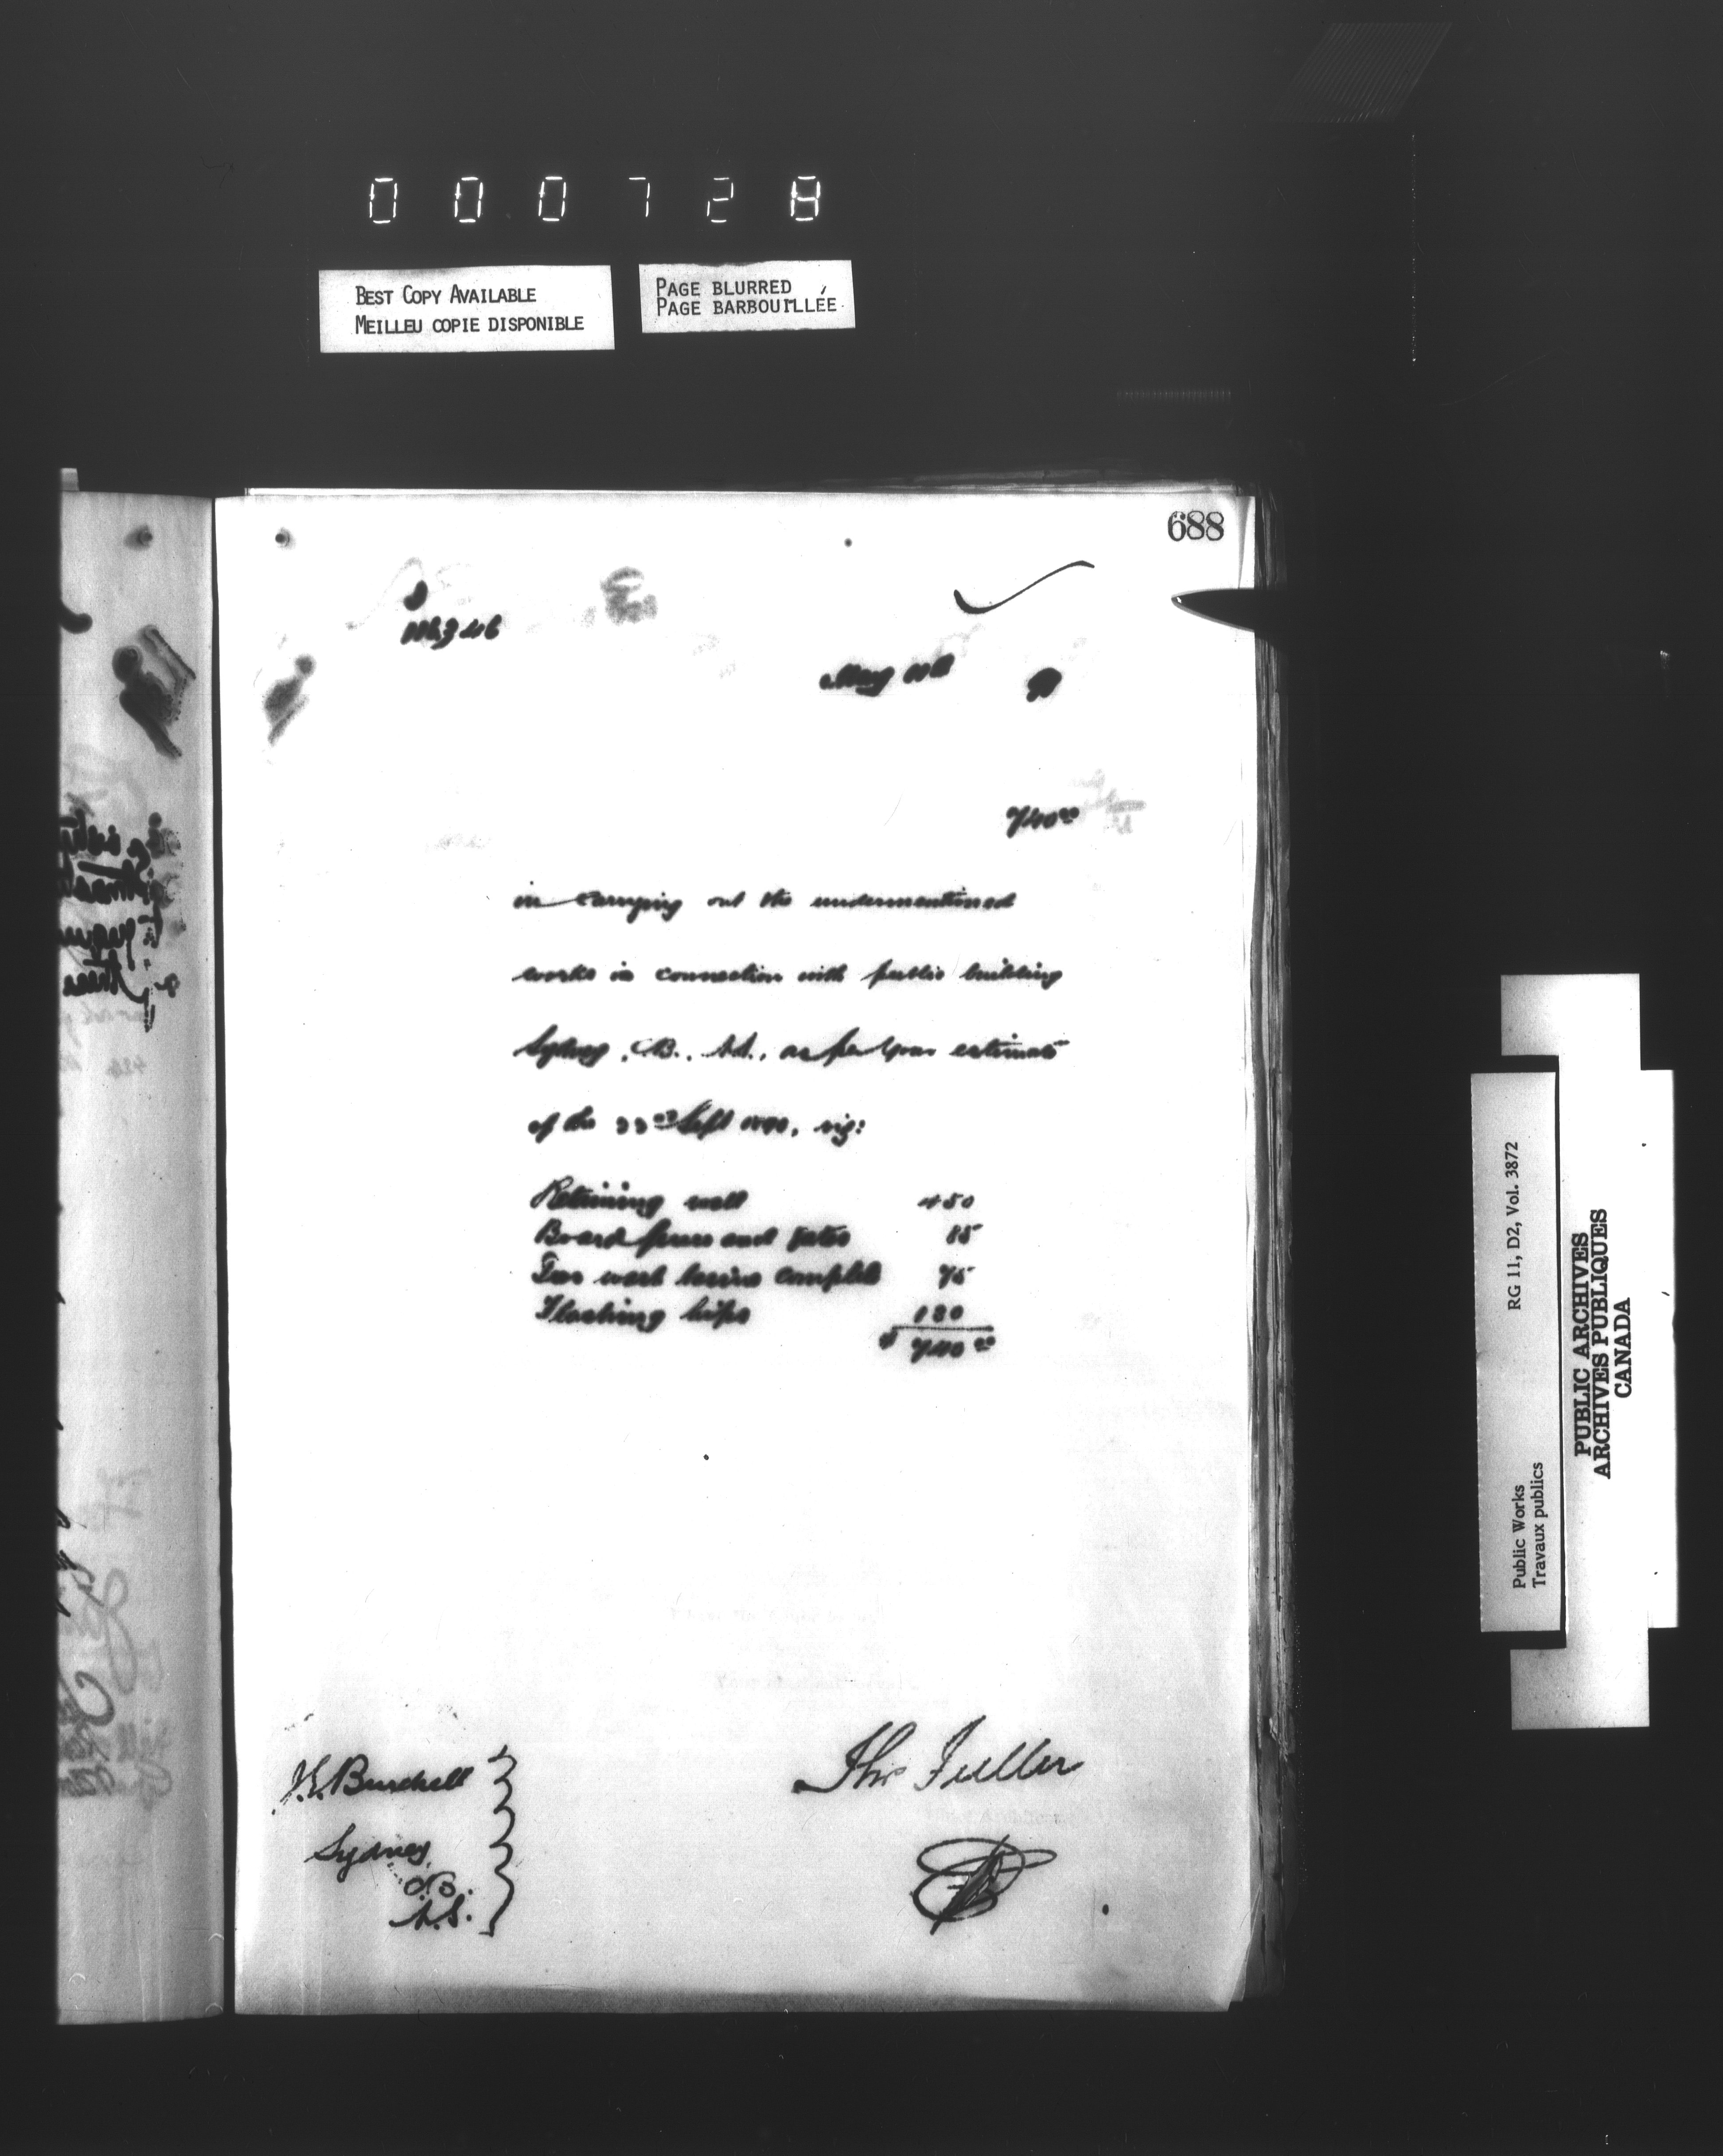 000728
BEST COPY AVAILABLE
MEILLEU COPIE DISPONIBLE
PAGE BLURRED
PAGE BARBOUILLÉE
688
May
740⁰⁰
in carrying out the undermentioned
works in connection with public building
Sydney, C.B., N.S., as per your estimate
of the Sept 1890, viz:
Retaining wall 450
Board fence and gates 85
Two wash basins complete 75
Flashing hips 130
$ 740 ⁰⁰
J.E. Burchell
Sydney,
C.B.
N.S.
Thos Fuller
RG 11, D2, Vol. 3872
Public Works
Travaux publics
PUBLIC ARCHIVES
ARCHIVES PUBLIQUES
CANADA